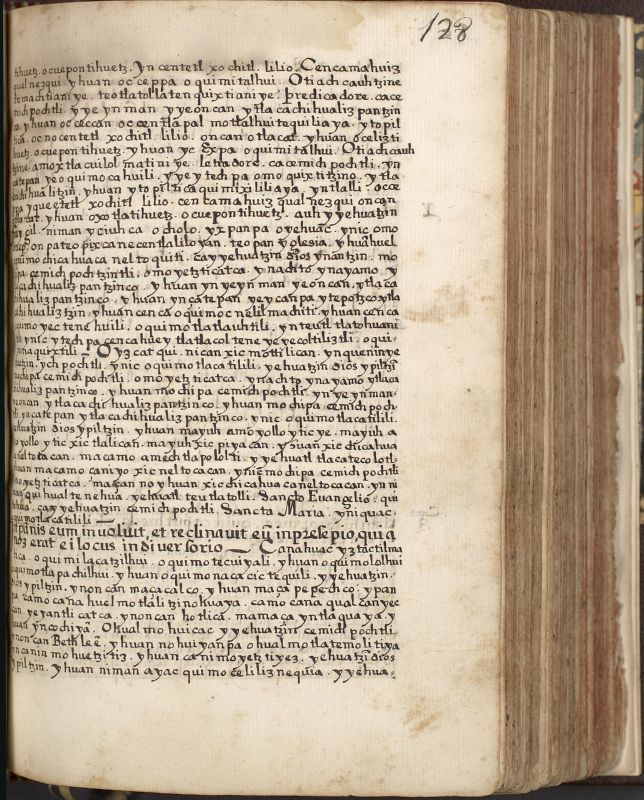 128
tihuetz. o cuepontihuetz. yn centetl xochitl. lilio. Cencamahuiz
qual nezqui. yhuan oc ceppa o quimitalhui. Otiachcauhtzine
temachtiani ye. teotlatollatenquixtiani ye. predicadore. ca ce
mich pochtli. yye yn man. yyeoncan. ytlacachihualizpantzin
yhuan oc ceccan. oc centlapal motlalhuitequili aya. ytopil
tica. oc no centetl xochitl. lilio. oncan otlacat. yhuan oceliztti
huetz. o cuepontihuetz. yhuan yc Expa o quimitalhui. Otiachcauh
tzine. amoxtlacuilol matini ye. letradore. ca cemich pochtli. yn
catepan ye o quimocahuili. yye ytechpa omo quixtitzino. ytla
cachihualitzin. yhuan ytopiltica quimixiliaya. yntlalli. occe
ppa yquecetetl xochitl lilio. cencamahuiz qual nezqui oncan
otlacat. yhuan oxotlatihuetz. o cuepontihuetz. auh yyehuatzin
niman yciuhca ocholo. yxpanpa oyehuac. ynic omo
on pa teopixcanecentlaliloyan. teopan yglesia. yhuan huel
quimochicahuaca neltoquiti. ca yyehuatzin Dios ynantzin. mo
chipa cemichpochtzintli. omoyetzticatca. ynachto ynayamo. y
tlacachihualizpantzinco. yhuan yn yeyn man yeoncan. ytlaca
chihualizpantzinco. yhuan yn catepan yeycanpa ytepotzco ytla
cachihualiztzin. yhuan cenca oquimocnelilmachiti. yhuan cenca
quimo yectenehuili. o quimotlatlauhtili. ynteutl tlatohuani
ynic ytechpa cencahuey tlatlacolteneyeyecoltiliztli. o qui
tiaquixtili. Oyzcatqui. nican xicmottilican. ynqueninye
huatzin. ychpochtli. ynic o quimotlacatilili. yehuatzin Dios ypiltzin
mochipa cemichpochtli. omoyetzticatca. ynachto ynayamo ytlaca
chihualizpantzinco. yhuan mochipa cemichpochtli. yn ye yn man
yeoncan ytlacachihualizpantzinco. yhuan mochipa cemichpoch
tli. yncatepan ytlacachihualizpantzinco. ynic o quimotlacatilili.
yehuatzin Dios ypiltzin. yhuan mayuh amoyollo yticye. mayuh a
moyollo ytic xictlalican. mayuh xicpiyacan. yhuan xicchicahua
caneltocacan. macamo amechtlapololti. yyehuatl tlacatecolotl.
yhuan macamo caniyo xicneltocacan. ynic mochipa cemichpochtli
omoyetzticatca. maçan no yhuan xicchicahuacaneltocacan. yn ni
can quihualtenehua. yehuatl teutlatolli. Sancto Euangelio. qui
tohua. ca yyehuatzin cemichpochtli. Sancta Maria. yniquac
quimotlacatilili
Et panis eum inuoluit, et reclinauit eum in presepio, quia
non erat ei locus in diuersorio. Tanahuac yztactilma
tica. o quimilacatzilhui. o quimotecuiyali. yhuan o quimololhui
o quimotlapachilhui. yhuan o quimonacacictequili. yyehuatzin
Dios ypiltzin. ynoncan maçacalco. yhuan maçapepechco. ypan
pa camo cana huel motlalitzinohuaya. camo cana qualcanyec
can. yeyantli catca. ynoncan hotlica. mamaca yntlaquaya. y
huan yncochiyan. O hualmohuicac yyehuatzin cemichpochtli
ynoncan Bethleem. yhuan nohuiyanpa o hualmotlatemolitiya
yncanin mohuetzitiz. yhuan canin moyetztiyez. yehuatzin Dios
ypiltzin. yhuan niman ayac quimoceliliznequia. yyehua